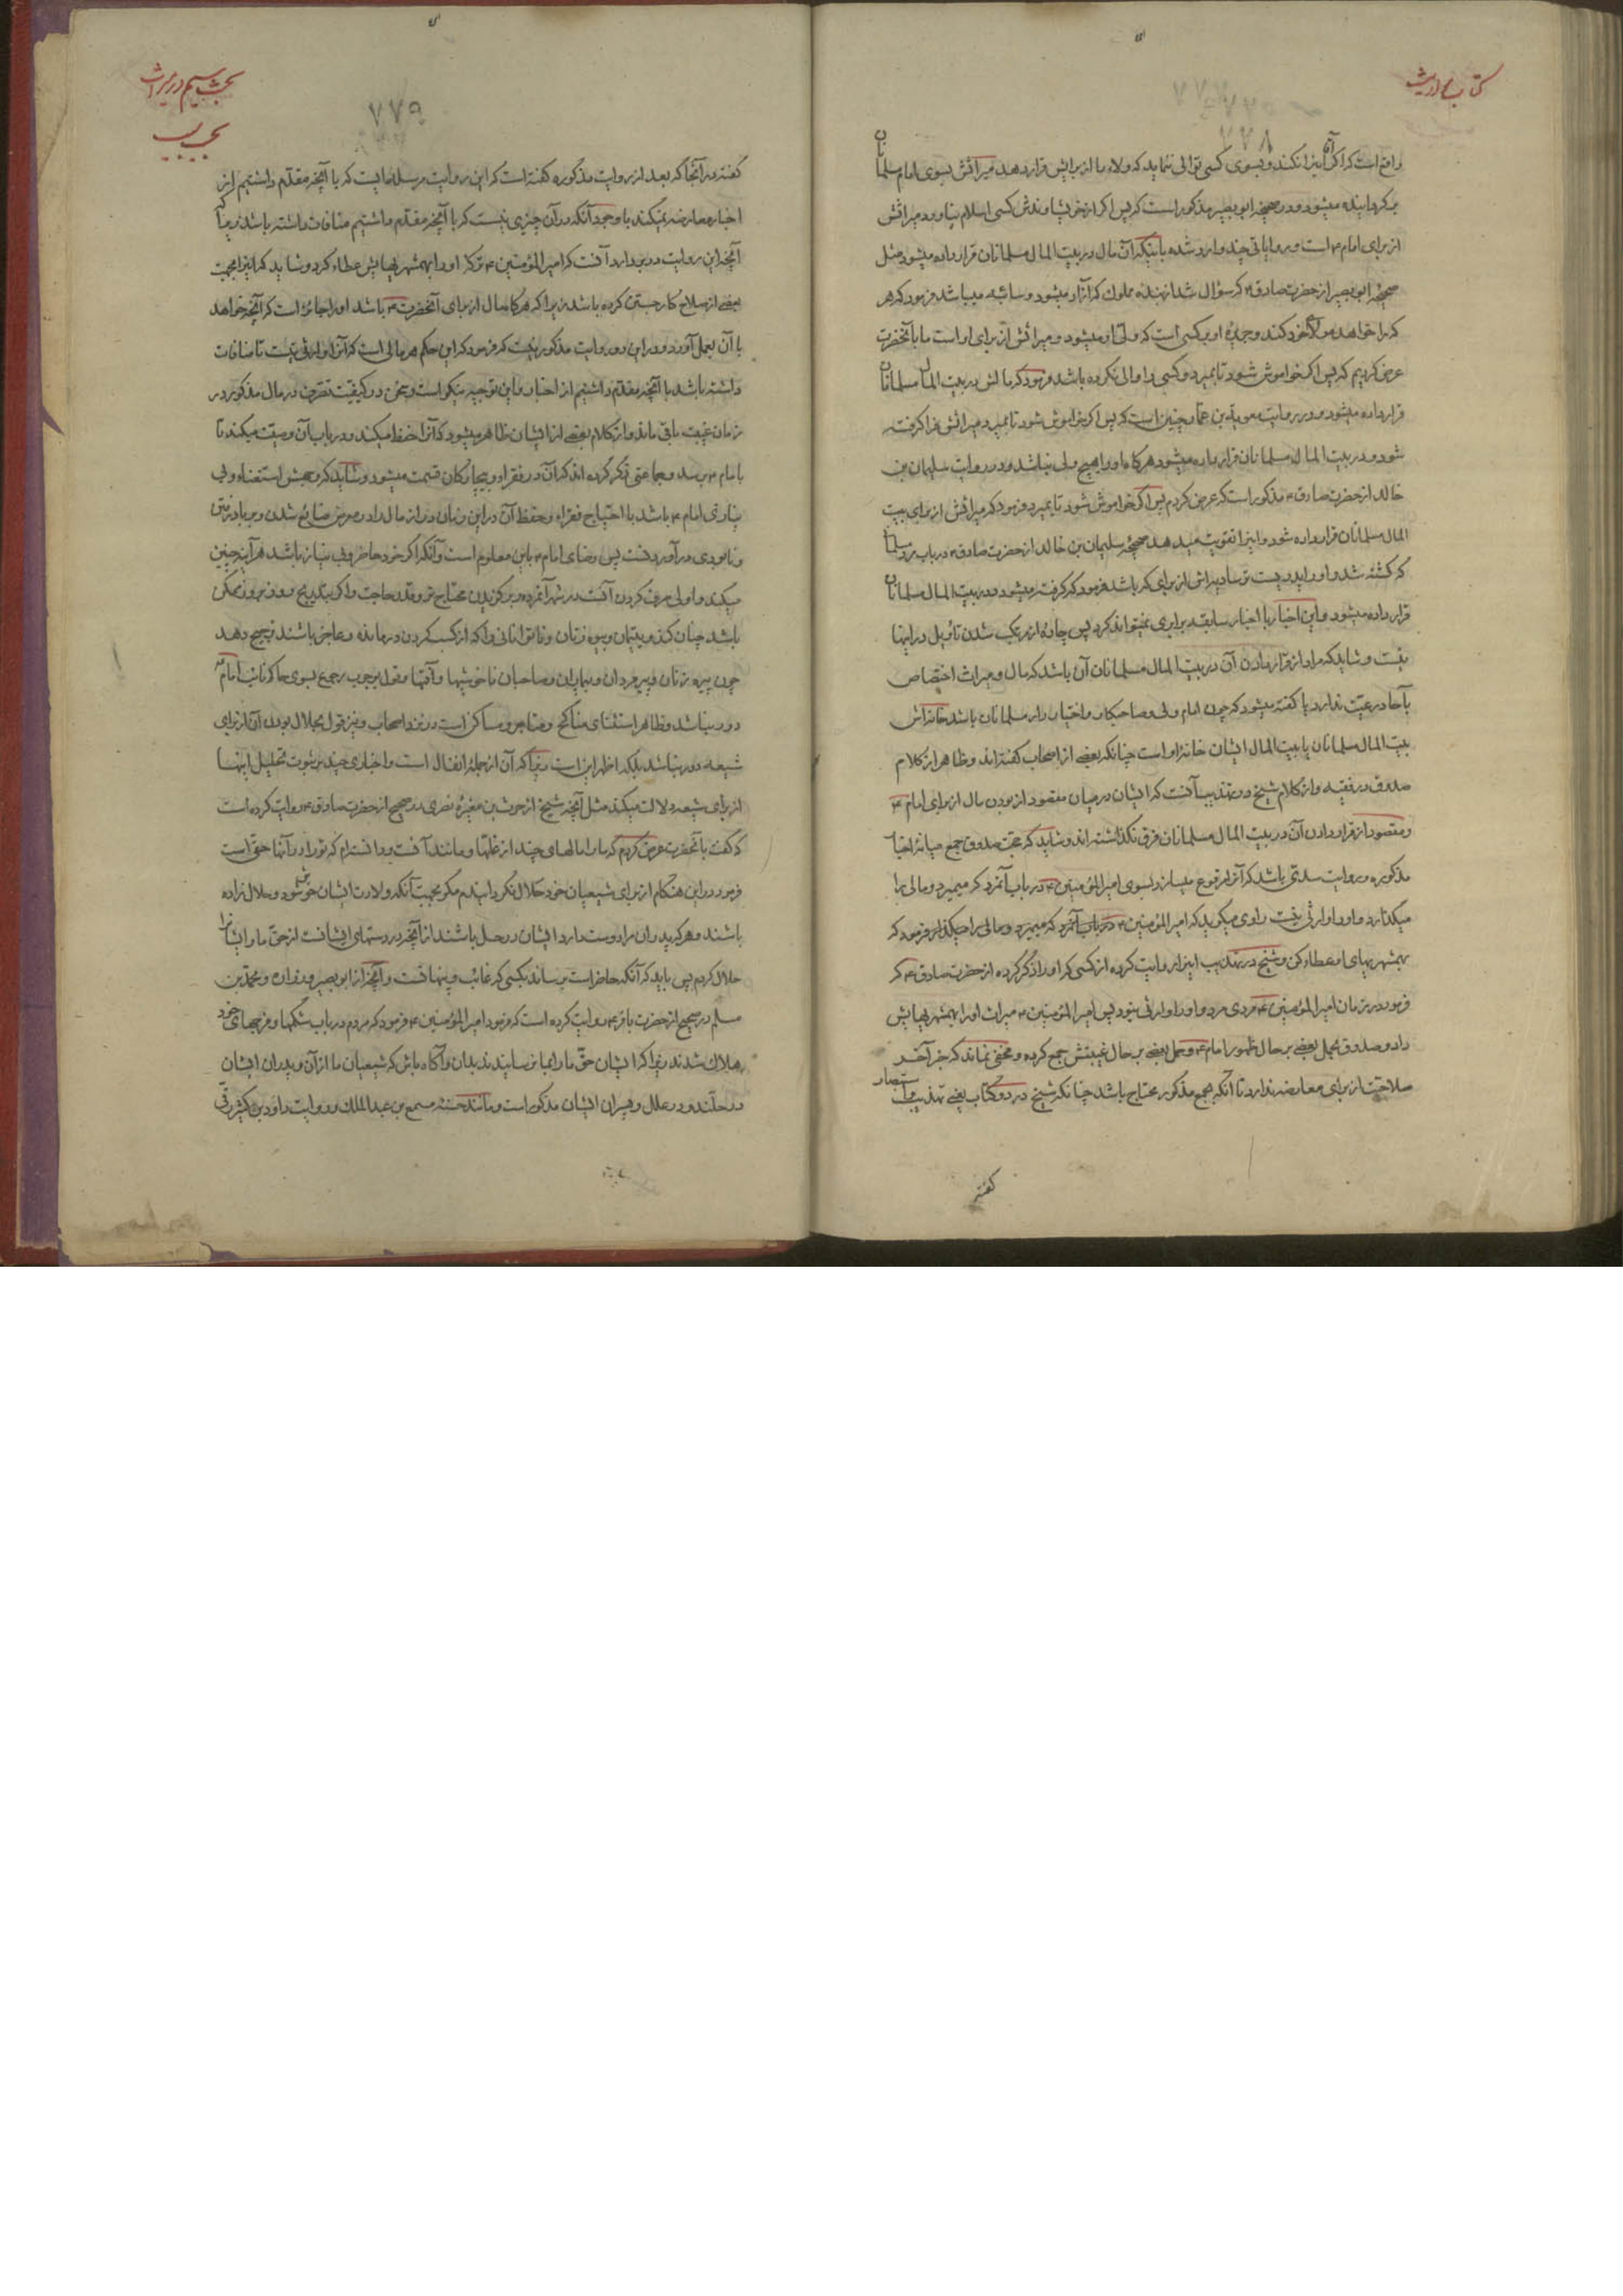 کتاب میراث
۷۷۸
واقع است که اگر آن را نکند و بسوی کسی توالی نماید که ولاء ما از برایش قرار دهد میراثش بسوی امام مسلمانان
برگردانیده میشود و در صحیحه ابو بصیر مذکور است که پس اگر از خویشاوندش کسی اسلام نیاورد میراثش
از برای امام ۴ است و روایاتی چند وارد شده باینکه آن مال در بیت المال مسلمانان قرار داده میشود مثل
صحیحه ابو بصیر از حضرت صادق ۴ که سؤال شد از بنده مملوک که آزاد میشود و سائبه میباشد فرمود که هر
که را خواهد مولای خود کند و جریره او بر کسی است که ولی او میشود و میراثش از برای او است ما با آنحضرت
عرض کردیم که پس اگر خواموش شود تا بمیرد و کسی را والی نکرده باشد فرمود که مالش در بیت المال مسلمانان
قرار داده میشود و در روایت معویة بن عمار چنین است که پس اگر خواموش شود تا بمیرد میراثش فرا گرفته
شود و در بیت المال مسلمانان قرار داده میشود هرگاه او را هیچ ولی نباشد و در روایت سلیمان بن
خالد از حضرت صادق ۴ مذکور است که عرض کردم پس اگر خواموش شود تا بمیرد فرمود که میراثش از برای بیت
المال مسلمانان قرار داده شود و اینرا تقویت میدهد صحیحه سلیمان بن خالد از حضرت صادق ۴ در باب مرد مسلمانی
که کشته شد و او را پدریست ترسا دیه اش از برای که باشد فرمود که گرفته میشود و در بیت المال مسلمانان
قرار داده میشود و این اخبار با اخبار سابقه برابری نمیتواند کرد پس چاره از مرتکب شدن تأویل در اینها
نیست و شاید که مراد از قرار دادن آن در بیت المال مسلمانان آن باشد که مال و میراث اختصاص
بآحاد رعیت ندارد یا گفته میشود که چون امام ولی و صاحبکار و اختیار دار مسلمانان باشد خانه اش
بیت المال مسلمانان یا بیت المال ایشان خانه او است چنانکه بعضی از اصحاب گفته اند و ظاهر از کلام
صدوق در فقیه و از کلام شیخ در تهذیب آنست که ایشان در میان مقصود از بودن مال از برای امام ۴
و مقصود از قرار دادن آن در بیت المال مسلمانان فرق نگذاشته اند و شاید که حجت صدوق جمع میانه اخبار
مذکوره و روایت سدی باشد که آنرا مرفوع میسازد بسوی امیر المؤمنین ۴ در باب آنمرد که میمیرد و مالی را
میگذارد و او را وارثی نیست راوی میگوید که امیر المؤمنین ۴ در باب آنمرد که میمیرد و مالی را میگذارد فرمود که
بهمشهریهای او عطاء کن و شیخ در تهذیب اینرا روایت کرده از کسی که او را ذکر کرده از حضرت صادق ۴ که
فرمود در زمان امیر المؤمنین ۴ مردی مرد و او را وارثی نبود پس امیر المؤمنین ۴ میراث او را بهمشهریهایش
داد و صدوق بحمل بعضی بر حال ظهور امام ۴ و حمل بعضی بر حال غیبتش جمع کرده و مخفی نماند که خبر آخر
صلاحیت از برای معارضه ندارد تا آنکه بجمع مذکور محتاج باشد چنانکه شیخ در دو کتاب یعنی تهذیب و استبصار
گفته
بحث سیم در میراث
بحسب
۷۷۹
گفته در آنجا که بعد از روایت مذکوره گفته است که این روایت مرسله ایست که با آنچه مقدم داشتیم از
اخبار معارضه نمیکند با وجود آنکه در آن چیزی نیست که با آنچه مقدم داشتیم منافات داشته باشد زیرا که
آنچه این روایت در بر دارد آنست که امیر المؤمنین ۴ ترکه او را بهمشهریهایش عطاء کرد و شاید که اینرا بجهت
بعضی از صلاح کار جستن کرده باشد زیرا که هرگاه مال از برای آنحضرت ۴ باشد او را جائز است که آنچه خواهد
با آن بعمل آورد و در این دو روایت مذکور نیست که فرمود که این حکم هر مالی است که آنرا وارثی نیست تا منافات
داشته باشد با آنچه مقدم داشتیم از اخبار و این توجیه نیکو است و سخن در کیفیت تصرف در مال مذکور در
زمان غیبت باقی ماند و از کلام بعضی از ایشان ظاهر میشود که آنرا حفظ میکند و در باب آن وصیت میکند تا
بامام ۴ برسد و جماعتی ذکر کرده اند که آن در فقراء و بیچارگان قسمت میشود و شاید که وجهش استغناء و بی
نیازی امام ۴ باشد با احتیاج فقراء و حفظ آن در این زمان دراز مال را در معرض ضایع شدن و بر باد رفتن
و نابودی در آوردنست پس رضای امام ۴ باین معلوم است و آنکه اگر خود حاضر و بی نیاز باشد هر آینه چنین
میکند و اولی صرف کردن آنست در شهر آنمرده و برگزیدن محتاج تر و بقدر حاجت و اگر بتدریج و روز بروز ممکن
باشد چنان کند و یتیمان و بیوه زنان و ناتوانانی را که از کسب کردن درمانده و عاجز باشند ترجیح دهد
چون پیره زنان و پیر مردان و بیماران و صاحبان ناخوشیها و آفتها و قول بوجوب رجوع بسوی حاکم نائب امام ۴
دور نباشد و ظاهر استثنای مناکح و متاجر و مساکن است در نزد اصحاب و نیز قول بحلال بودن آن از برای
شیعه دور نباشد بلکه اظهر این است زیرا که آن از جمله انفال است و اخباری چند بر ثبوت تحلیل اینها
از برای شیعه دلالت میکند مثل آنچه شیخ از حرث بن مغیره نصری در صحیح از حضرت صادق ۴ روایت کرده است
که گفت بآنحضرت عرض کردم که ما را مالهای چند از غلتها و مانند آنست و دانسته ام که تو را در آنها حقی است
فرمود در این هنگام از برای شیعیان خود حلال نکرده ایم مگر بجهت آنکه ولادت ایشان خوش شود و حلال زاده
باشند و هر که پدران مرا دوست دارد ایشان در حل باشند از آنچه در دستهای ایشانست از حق ما و ایشان را
حلال کردم پس باید که آنکه حاضر است برساند بکسی که غائب و پنهانست و آنچه از ابو بصیر و زراره و محمد بن
مسلم در صحیح از حضرت باقر ۴ روایت کرده است که فرمود امیر المؤمنین ۴ فرمود که مردم در باب شکمها و فرجهای خود
هلاک شدند زیرا که ایشان حق ما را بما نرسانیدند بدان و آگاه باش که شیعیان ما از آن و پدران ایشان
در حلند و در علل و پسران ایشان مذکور است و مانند حسنه مسمع بن عبد الملک و روایت داود بن کثیر رقی